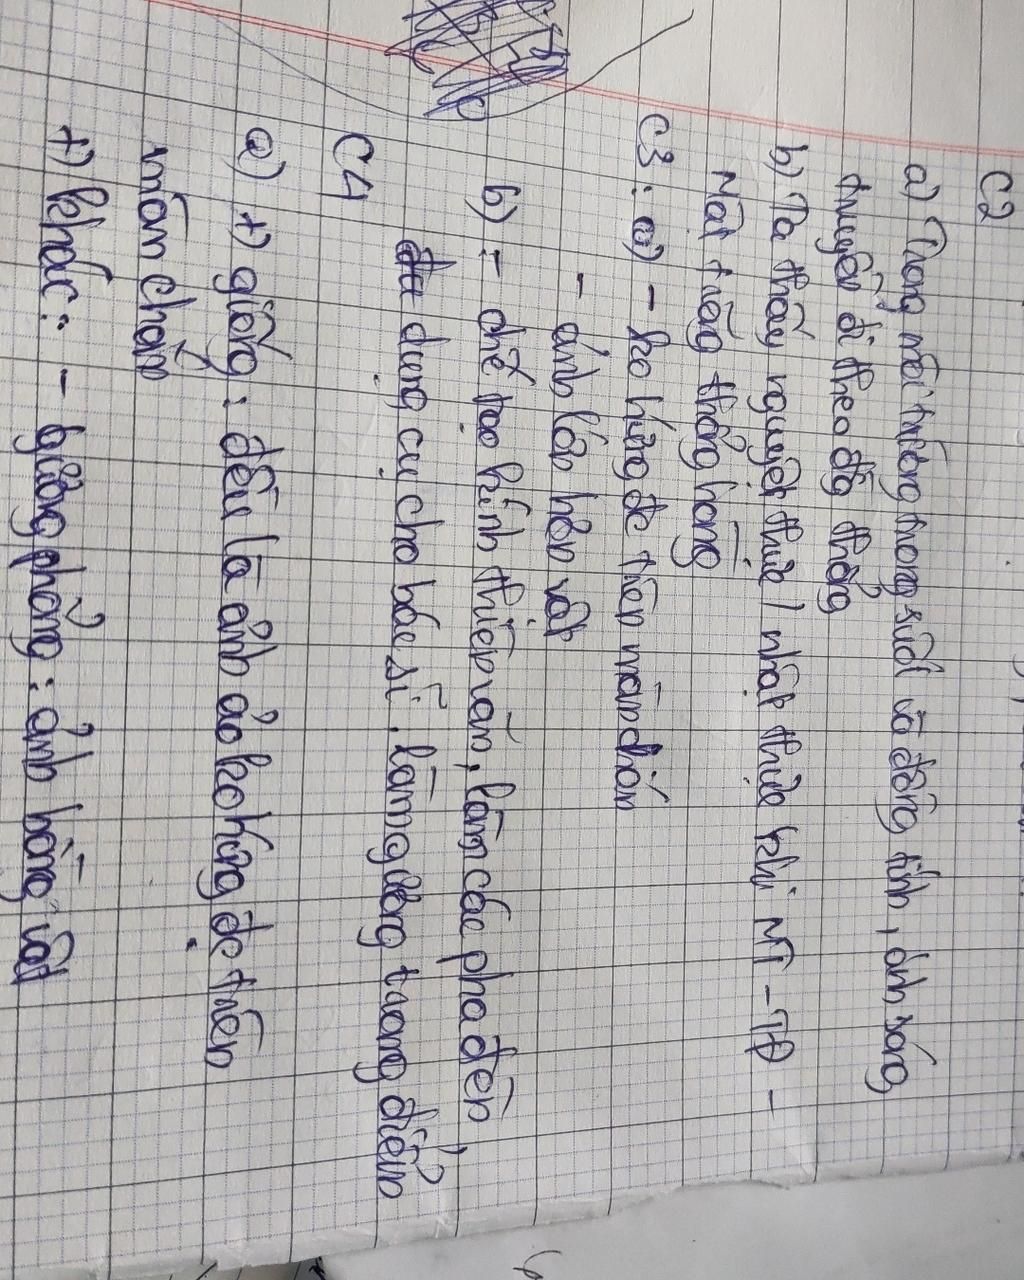 C2
a) Trong môi trường trong suốt và đồng tính, ánh sáng
truyền đi theo đg thẳng
b) Ta thấy nguyệt thực / nhật thực khi MT - TĐ -
Mặt trăng thẳng hàng
C3: a) - ko hứng đc trên màn chắn
- ảnh lớn hơn vật
b) - chế tạo kính thiên văn, làm các pha đèn,
dụng cụ cho bác sĩ, làm gương trang điểm
C4
a) +) giống: đều là ảnh ảo ko hứng đc trên
màn chắn
+) khác: - gương phẳng: ảnh bằng vật